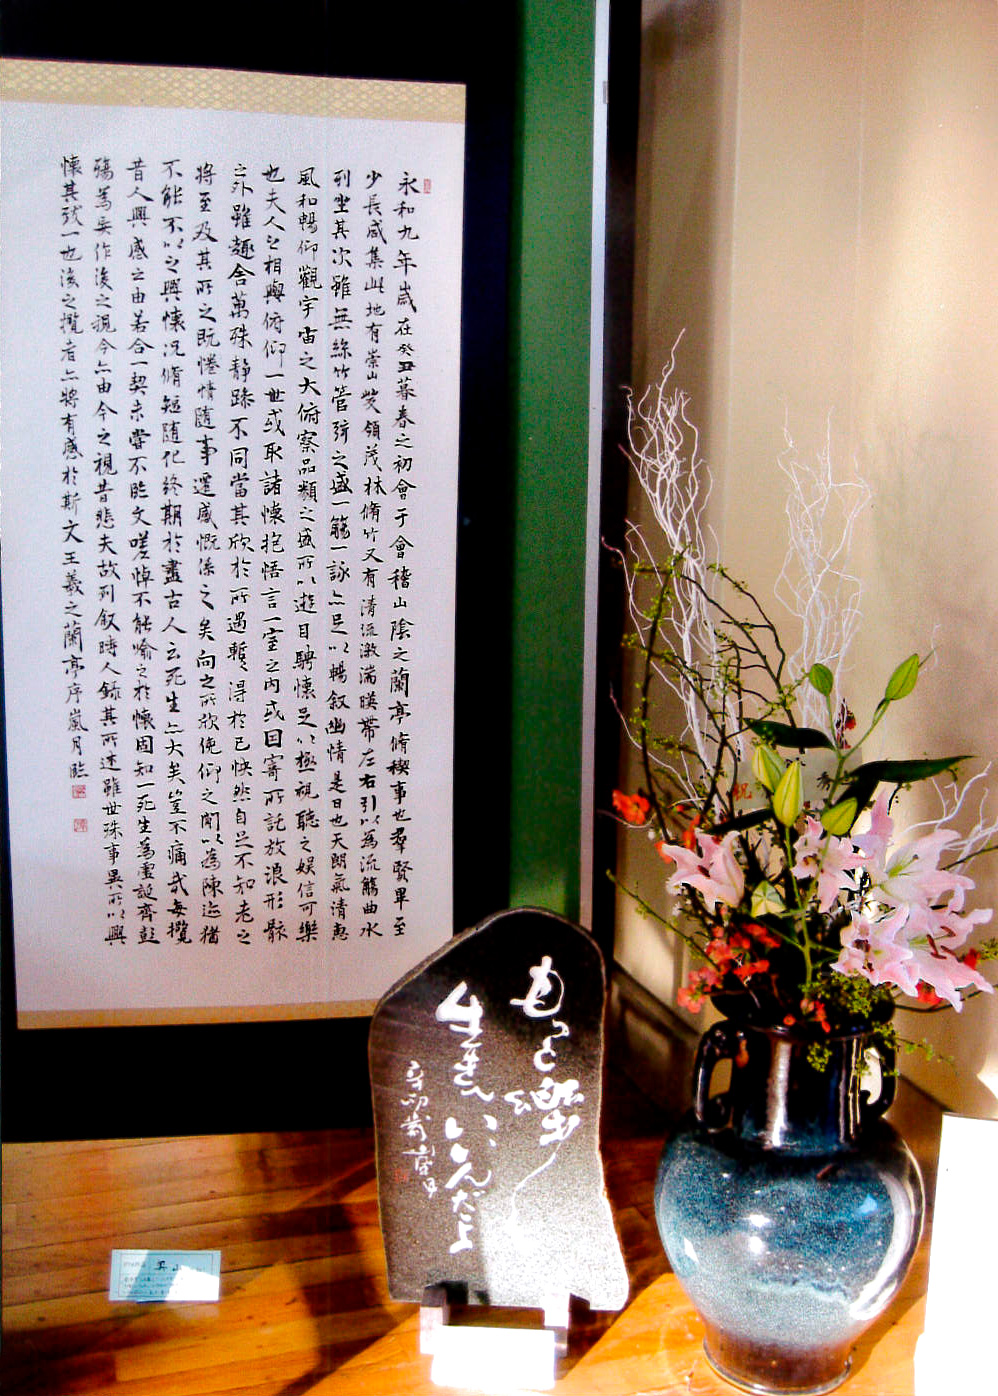 永和九年歲在癸丑暮春之初會于會稽山陰之蘭亭脩稧事也羣賢畢至
少長咸集此地有崇山茂領茂林脩竹又有清流激湍暎帶左右引以為流觴曲水
列坐其次雖無絲竹管弦之盛一觴一詠亦足以暢叙幽情是日也天朗氣清惠
風和暢仰觀宇宙之大俯察品類之盛所以遊目騁懷足以極視聽之娱信可樂
也夫人之相與俯仰一世或取諸懷抱悟言一室之內或因寄所託放浪形骸
之外雖趣舍萬殊静躁不同當其欣於所遇暫得於己怏然自足不知老之
將至及其所之既惓情随事遷感慨係之矣向之所欣俛仰之閒以為陳迹猶
不能不以之興懷況脩短随化終期於盡古人云死生亦大矣豈不痛哉每攬
昔人興感之由若合一契未嘗不臨文嗟悼不能喻之於懷固知一死生為虚誕齊彭
殤為妄作後之視今亦由今之視昔悲夫故列叙時人錄其所述雖世殊事異所以興
懷其致一也後之攬者亦將有感於斯文王羲之蘭亭序嵐月臨
もっと楽に
生きていいんだよ
祝
秀